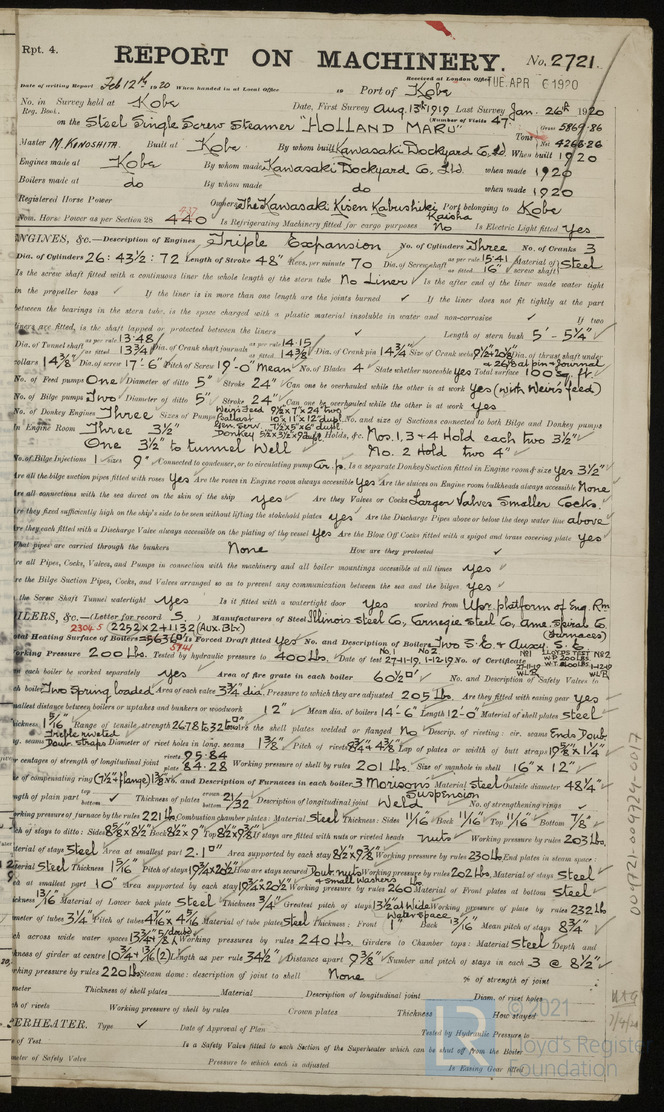 Rpt. 4.
REPORT ON MACHINERY. No. 2721.
Received at London Office TUE. APR 6 1920
Date of writing Report Feb 12th 1920 When handed in at Local Office 19 Port of Kobe
No. in Survey held at Kobe Date, First Survey Aug. 13th 1919 Last Survey Jan. 26th 1920
Reg. Book. (Number of Visits 47
on the Steel Single Screw Steamer "HOLLAND MARU" Tons Gross 5869.86 Net 4268.26
Master M. KINOSHITA. Built at Kobe By whom built Kawasaki Dockyard Co. Ltd. When built 1920
Engines made at Kobe By whom made Kawasaki Dockyard Co. Ltd. when made 1920
Boilers made at do By whom made do when made 1920
Registered Horse Power Owners The Kawasaki Kisen Kabushiki Kaisha Port belonging to Kobe
Nom. Horse Power as per Section 28 440 Is Refrigerating Machinery fitted for cargo purposes No Is Electric Light fitted Yes
ENGINES, &c.—Description of Engines Triple Expansion No. of Cylinders Three No. of Cranks 3
Dia. of Cylinders 26 : 43½ : 72 Length of Stroke 48" Revs. per minute 70 Dia. of Screw shaft as per rule 15.41 as fitted 16" Material of screw shaft Steel
Is the screw shaft fitted with a continuous liner the whole length of the stern tube No Liner Is the after end of the liner made water tight
in the propeller boss ✓ If the liner is in more than one length are the joints burned ✓ If the liner does not fit tightly at the part
between the bearings in the stern tube, is the space charged with a plastic material insoluble in water and non-corrosive ✓ If two
liners are fitted, is the shaft lapped or protected between the liners ✓ Length of stern bush 5' - 5¼"
Dia. of Tunnel shaft as per rule 13.48 as fitted 13¾ Dia. of Crank shaft journals as per rule 14.15 as fitted 14⅜ Dia. of Crank pin 14¾" Size of Crank webs 9½" + 20½" Dia. of thrust shaft under
collars 14⅜" Dia. of screw 17'-6" Pitch of Screw 19'-0" Mean No. of Blades 4 State whether moveable Yes Total surface 100 sq. ft.
No. of Feed pumps One Diameter of ditto 5" Stroke 24" Can one be overhauled while the other is at work Yes (with Weir's feed)
No. of Bilge pumps Two Diameter of ditto 5" Stroke 24" Can one be overhauled while the other is at work Yes
No. of Donkey Engines Three Sizes of Pumps Weirs Feed 9½ x 7 x 24" two Ballast 10" x 11" x 12" dupl No. and size of Suctions connected to both Bilge and Donkey pumps
In Engine Room Three 3½" In Holds, &c. Nos. 1, 3 + 4 Hold each two 3½"
One 3½" to tunnel Well No. 2 Hold two 4"
No. of Bilge Injections 1 sizes 9" Connected to condenser, or to circulating pump Cir. p. Is a separate Donkey Suction fitted in Engine room & size Yes 3½"
Are all the bilge suction pipes fitted with roses Yes Are the roses in Engine room always accessible Yes Are the sluices on Engine room bulkheads always accessible None
Are all connections with the sea direct on the skin of the ship Yes Are they Valves or Cocks Larger Valves Smaller Cocks.
Are they fixed sufficiently high on the ship's side to be seen without lifting the stokehold plates Yes Are the Discharge Pipes above or below the deep water line above
Are they each fitted with a Discharge Valve always accessible on the plating of the vessel Yes Are the Blow Off Cocks fitted with a spigot and brass covering plate Yes
What pipes are carried through the bunkers None How are they protected ✓
Are all Pipes, Cocks, Valves, and Pumps in connection with the machinery and all boiler mountings accessible at all times Yes
Are the Bilge Suction Pipes, Cocks, and Valves arranged so as to prevent any communication between the sea and the bilges Yes
Is the Screw Shaft Tunnel watertight Yes Is it fitted with a watertight door Yes worked from Upr. platform of Eng. Rm
BOILERS, &c.—(Letter for record S) Manufacturers of Steel Illinois Steel Co, Carnegie Steel Co, Ame. Spiral Co. (Furnaces)
2304.5 (2252 x 2 + 1132 (Aux. Blr.)
Total Heating Surface of Boilers 5636 5741 Is Forced Draft fitted Yes No. and Description of Boilers Two S.E. & Auxy. S.E
Working Pressure 200 lbs. Tested by hydraulic pressure to 400 lbs. Date of test No. 1 27-11-19, No. 2 1-12-19 No. of Certificate
Can each boiler be worked separately Yes Area of fire grate in each boiler 60½ No. and Description of Safety Valves to
each boiler Two spring loaded Area of each valve 3¾ dia. Pressure to which they are adjusted 205 lbs. Are they fitted with easing gear Yes
Smallest distance between boilers or uptakes and bunkers or woodwork 12" Mean dia. of boilers 14'-6" Length 12'-0" Material of shell plates Steel
Thickness 1 5/16 Range of tensile strength 26.78 to 32 Are the shell plates welded or flanged No Descrip. of riveting: cir. seams Ends Doub.
long. seams Triple riveted Doub. Straps Diameter of rivet holes in long. seams 1⅜" Pitch of rivets Lap of plates or width of butt straps 19⅜ x 1¼"
Percentages of strength of longitudinal joint rivets 95.84 plate 84.28 Working pressure of shell by rules 201 lbs. Size of manhole in shell 16" x 12"
Size of compensating ring (7½" flange) 1⅜ No. and Description of Furnaces in each boiler 3 Morison's Suspension Material Steel Outside diameter 48¼"
Length of plain part top bottom ✓ Thickness of plates crown bottom 21/32 Description of longitudinal joint Weld No. of strengthening rings ✓
Working pressure of furnace by the rules 221 lbs Combustion chamber plates: Material Steel Thickness: Sides 11/16" Back 11/16" Top 11/16" Bottom ⅞"
Pitch of stays to ditto: Sides 8⅝ x 8½ Back 8½ x 9" Top 8½ x 9⅜ If stays are fitted with nuts or riveted heads nuts Working pressure by rules 203 lbs.
Material of stays Steel Area at smallest part 2.1 Area supported by each stay 8½ x 9⅜ Working pressure by rules 230 lbs End plates in steam space:
Material Steel Thickness 1 5/16" Pitch of stays 19¾ x 20½ How are stays secured Doub. nuts & Small washers Working pressure by rules 202 lbs. Material of stays Steel
Area at smallest part 10" Area supported by each stay 19¾ x 20½ Working pressure by rules 260 Material of Front plates at bottom Steel
Thickness 13/16" Material of Lower back plate Steel Thickness ¾" Greatest pitch of stays 13½ at Wide Water space Working pressure of plate by rules 232 lb
Diameter of tubes 3¼" Pitch of tubes 4⅝ x 4½ Material of tube plates Steel Thickness: Front 1" Back 13/16" Mean pitch of stays 8¾"
Pitch across wide water spaces 13¾ Working pressures by rules 240 lbs. Girders to Chamber tops: Material Steel Depth and
thickness of girder at centre 10¾ + 13/16 (2) Length as per rule 34½" Distance apart 9⅜" Number and pitch of stays in each 3 @ 8½"
Working pressure by rules 220 lbs. Steam dome: description of joint to shell None % of strength of joint
Diameter Thickness of shell plates Material Description of longitudinal joint Diam. of rivet holes
Pitch of rivets Working pressure of shell by rules Crown plates Thickness How stayed
SUPERHEATER. Type ✓ Date of Approval of Plan Tested by Hydraulic Pressure to
Date of Test Is a Safety Valve fitted to each Section of the Superheater which can be shut off from the Boiler
Diameter of Safety Valve Pressure to which each is adjusted Is Easing Gear fitted
009721-009724-0017
© 2021
Lloyd's Register
Foundation
LR